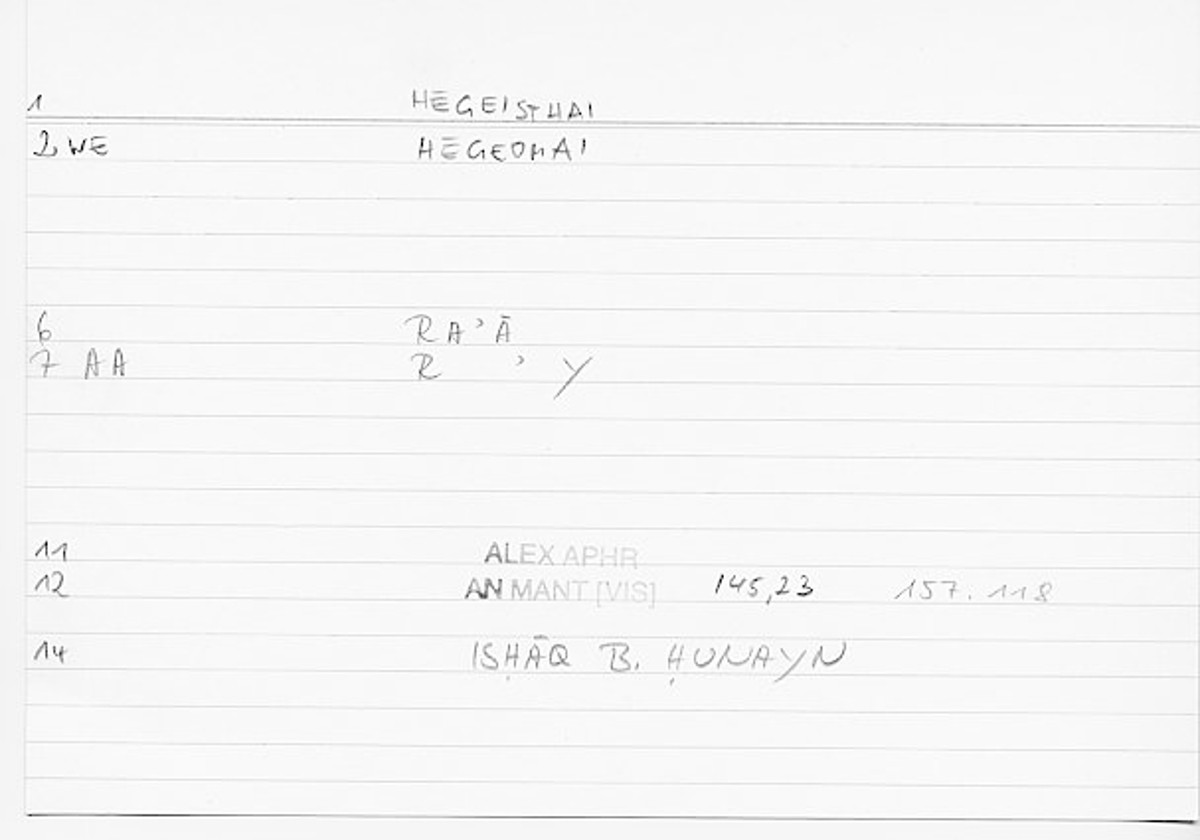 1 HĒGEISTHAI
2, WE HĒGEOMAI
6 RAʾĀ
7 AA R ʾ Y
11 ALEX APHR
12 AN MANT [VIS] 145,23 157.118
14 ISḤĀQ B. ḤUNAYN